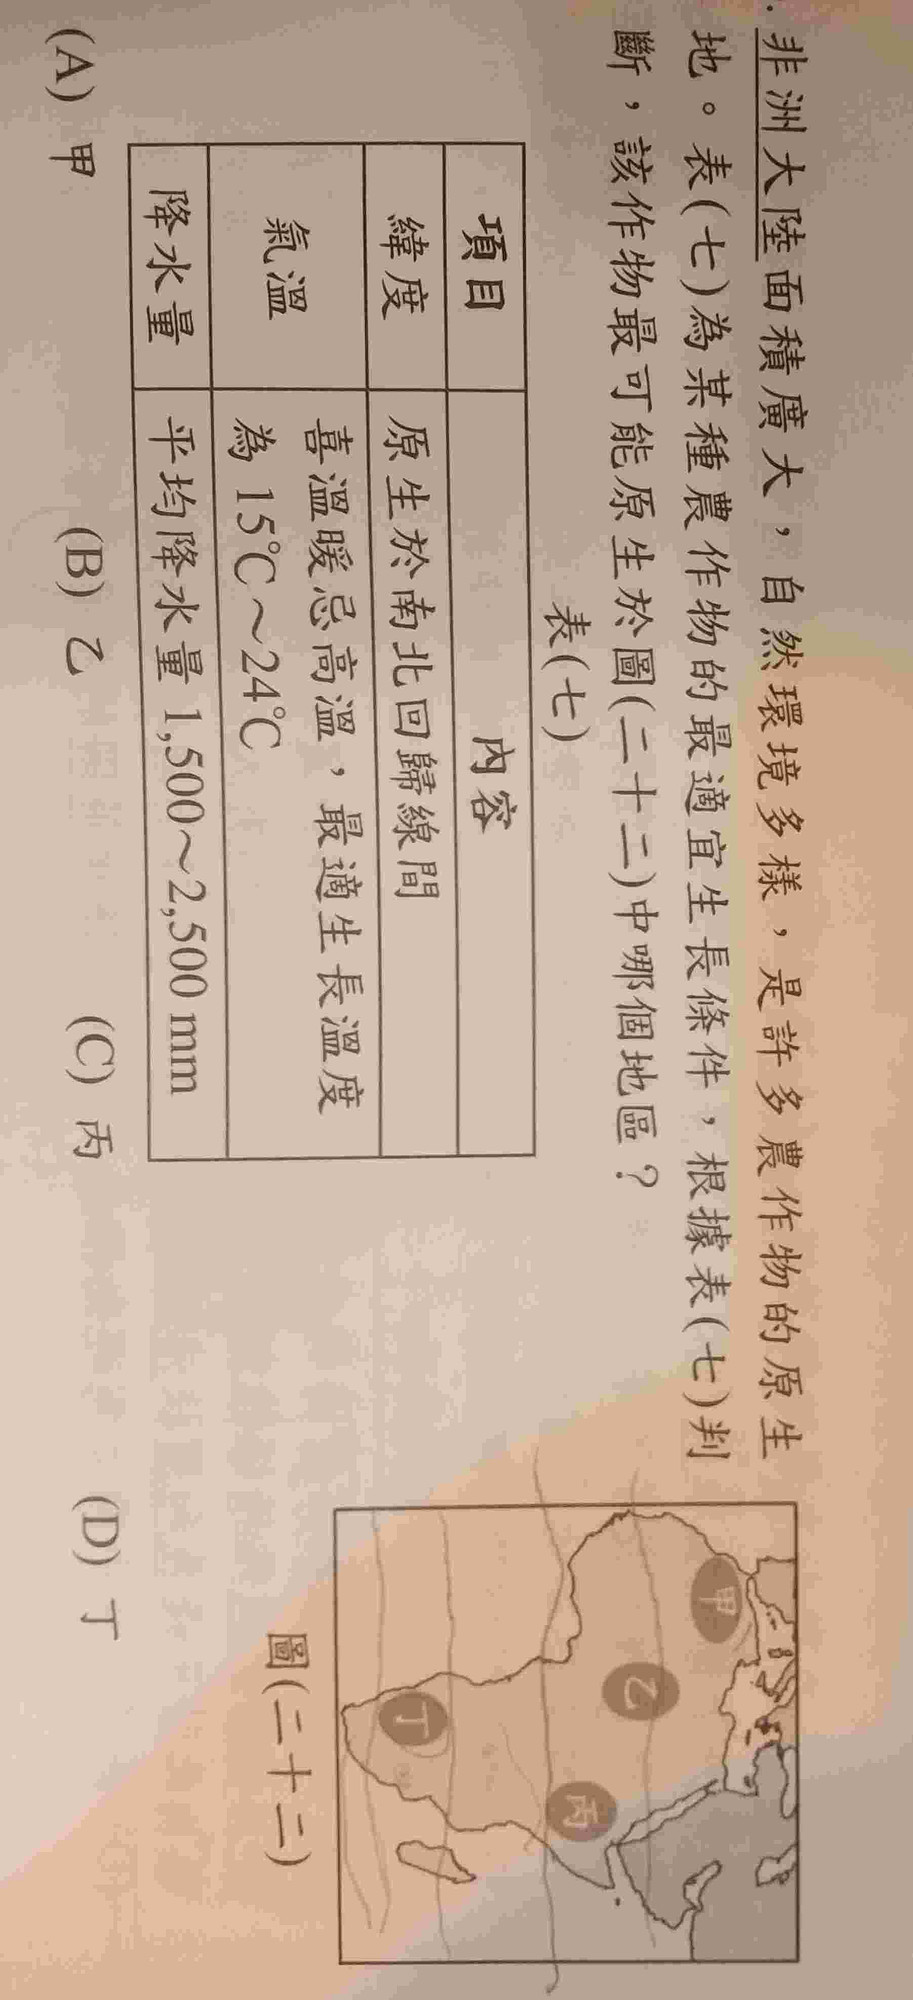 非洲大陸面積廣大，自然環境多樣，是許多農作物的原生
地。表(七)為某種農作物的最適宜生長條件，根據表(七)判
斷，該作物最可能原生於圖(二十二)中哪個地區？
表(七)
項目 內容
緯度 原生於南北回歸線間
氣溫 喜溫暖忌高溫，最適生長溫度
為 15℃～24℃
降水量 平均降水量 1,500～2,500 mm
甲
乙
丙
丁
圖(二十二)
(A) 甲 (B) 乙 (C) 丙 (D) 丁